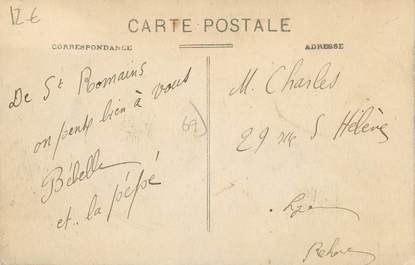 12€
CARTE POSTALE
CORRESPONDANCE
ADRESSE
De St Romains
on pense bien à vous
Bébelle
et la pépé
69)
M. Charles
29 rue S Hélène
Lyon
Rhône